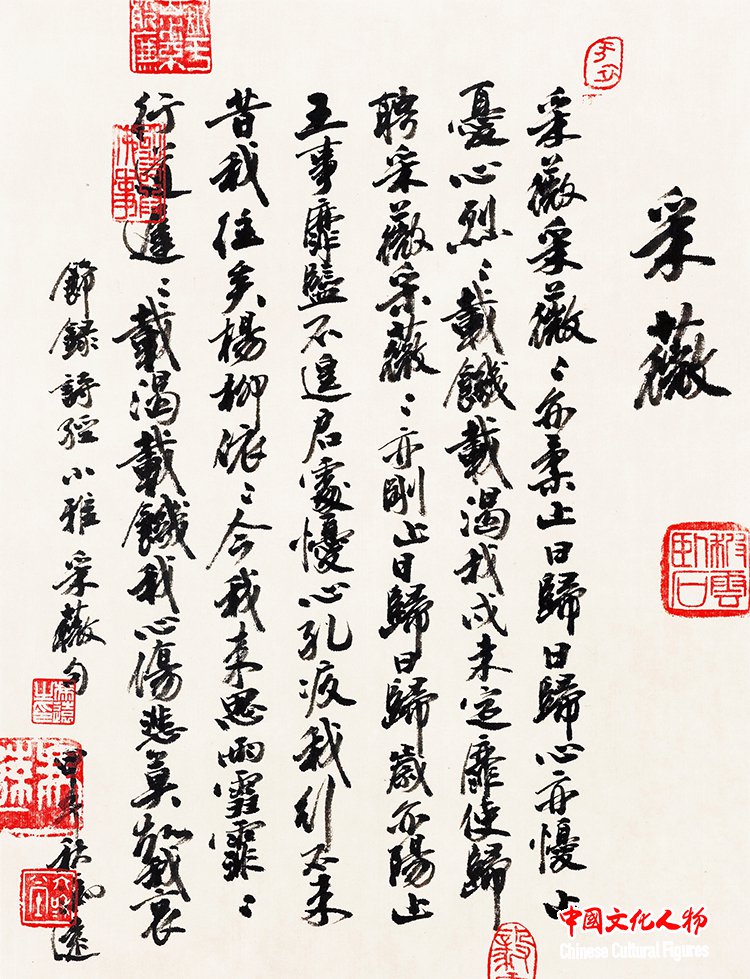 采薇
采薇采薇〻亦柔止曰歸曰歸心亦懮止
憂心烈〻載饑載渴我戍未定靡使歸
聘采薇采薇〻亦剛止曰歸曰歸歲亦陽止
王事靡盬不遑启處懮心孔疚我行不来
昔我往矣楊柳依〻今我来思雨雪霏〻
行道遲〻載渴載饑我心傷悲莫知我哀
節録詩經小雅采薇句
甲午秋
中國文化人物
Chinese Cultural Figures